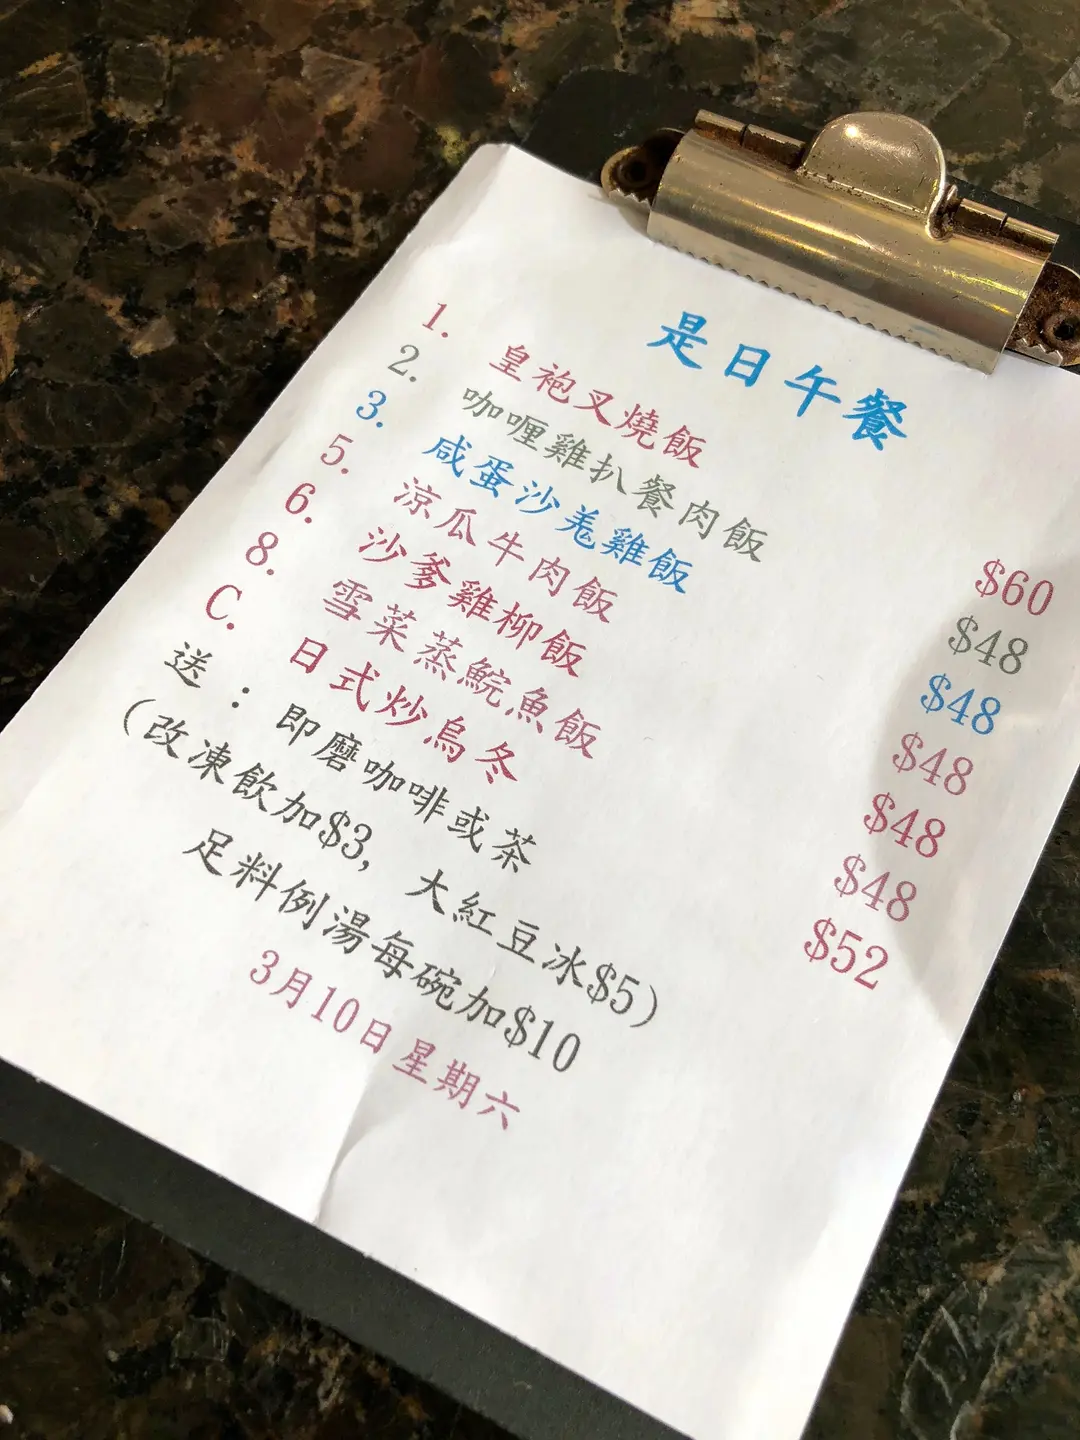 是日午餐
1. 皇袍叉燒飯 $60
2. 咖喱雞扒餐肉飯 $48
3. 咸蛋沙羗雞飯 $48
5. 涼瓜牛肉飯 $48
6. 沙爹雞柳飯 $48
8. 雪菜蒸鯇魚飯 $48
C. 日式炒烏冬 $52
送：即磨咖啡或茶
（改凍飲加$3, 大紅豆冰$5）
足料例湯每碗加$10
3月10日星期六